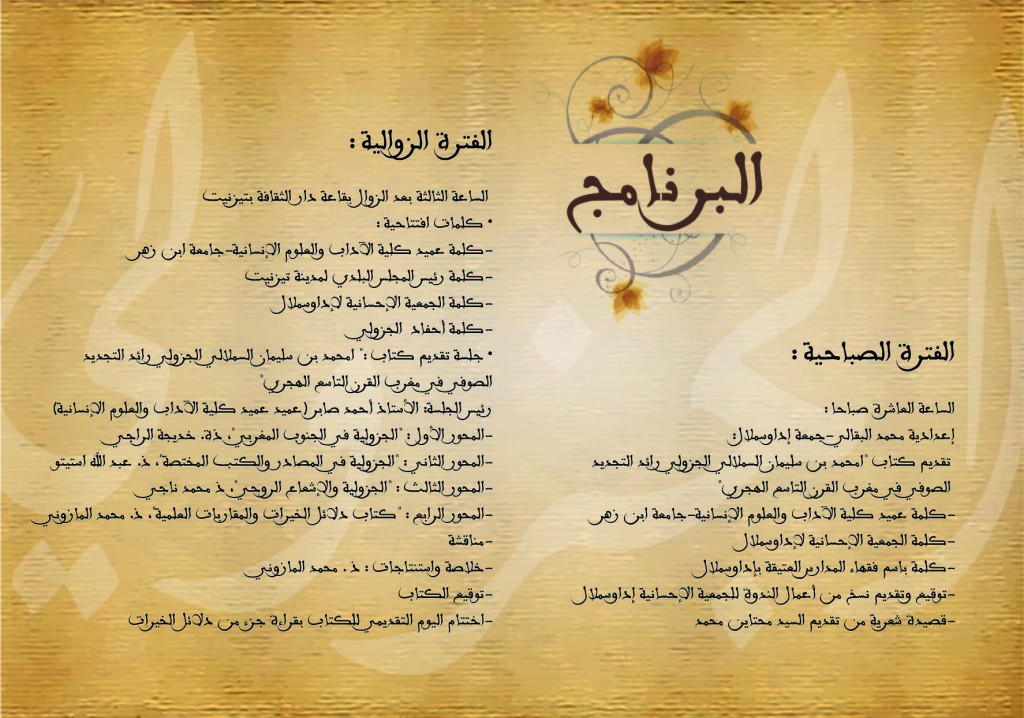 البرنامج
الفترة الصباحية :
الساعة العاشرة صباحا :
إعدادية محمد البقالي-جمعة إداوسملال:
تقديم كتاب "امحمد بن سليمان السملالي الجزولي رائد التجديد
الصوفي في مغرب القرن التاسع الهجري"
-كلمة عميد كلية الآداب والعلوم الإنسانية-جامعة ابن زهر
-كلمة الجمعية الإحسانية لإداوسملال
-كلمة باسم فقهاء المدارس العتيقة بإداوسملال
-توقيع وتقديم نسخ من أعمال الندوة للجمعية الإحسانية إداوسملال
-قصيدة شعرية من تقديم السيد محتاين محمد
الفترة الزوالية :
الساعة الثالثة بعد الزوال بقاعة دار الثقافة بتيزنيت
• كلمات افتتاحية :
-كلمة عميد كلية الآداب والعلوم الإنسانية-جامعة ابن زهر
-كلمة رئيس المجلس البلدي لمدينة تيزنيت
-كلمة الجمعية الإحسانية لإداوسملال
-كلمة أحفاد الجزولي
• جلسة تقديم كتاب :" امحمد بن سليمان السملالي الجزولي رائد التجديد
الصوفي في مغرب القرن التاسع الهجري"
رئيس الجلسة: الأستاذ أحمد صابر(عميد عميد كلية الآداب والعلوم الإنسانية)
-المحور الأول: "الجزولية في الجنوب المغربي"، ذة. خديجة الراجي
-المحور الثاني: "الجزولية في المصادر والكتب المختصة"، ذ. عبد الله استيتو
-المحور الثالث : "الجزولية والإشعاع الروحي"، ذ محمد ناجي
-المحور الرابع : "كتاب دلائل الخيرات والمقاربات العلمية"، ذ. محمد المازوني
-مناقشة
-خلاصة واستنتاجات : ذ . محمد المازوني
-توقيع الكتاب
-اختتام اليوم التقديمي للكتاب بقراءة جزء من دلائل الخيرات
الجزولي